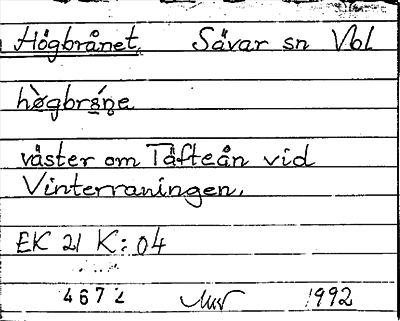 Högbrånet Sävar sn Vbl
hø̀gbrá̱n̥e
väster om Täfteån vid
Vinterraningen.
EK 21 K:04
4672 1992